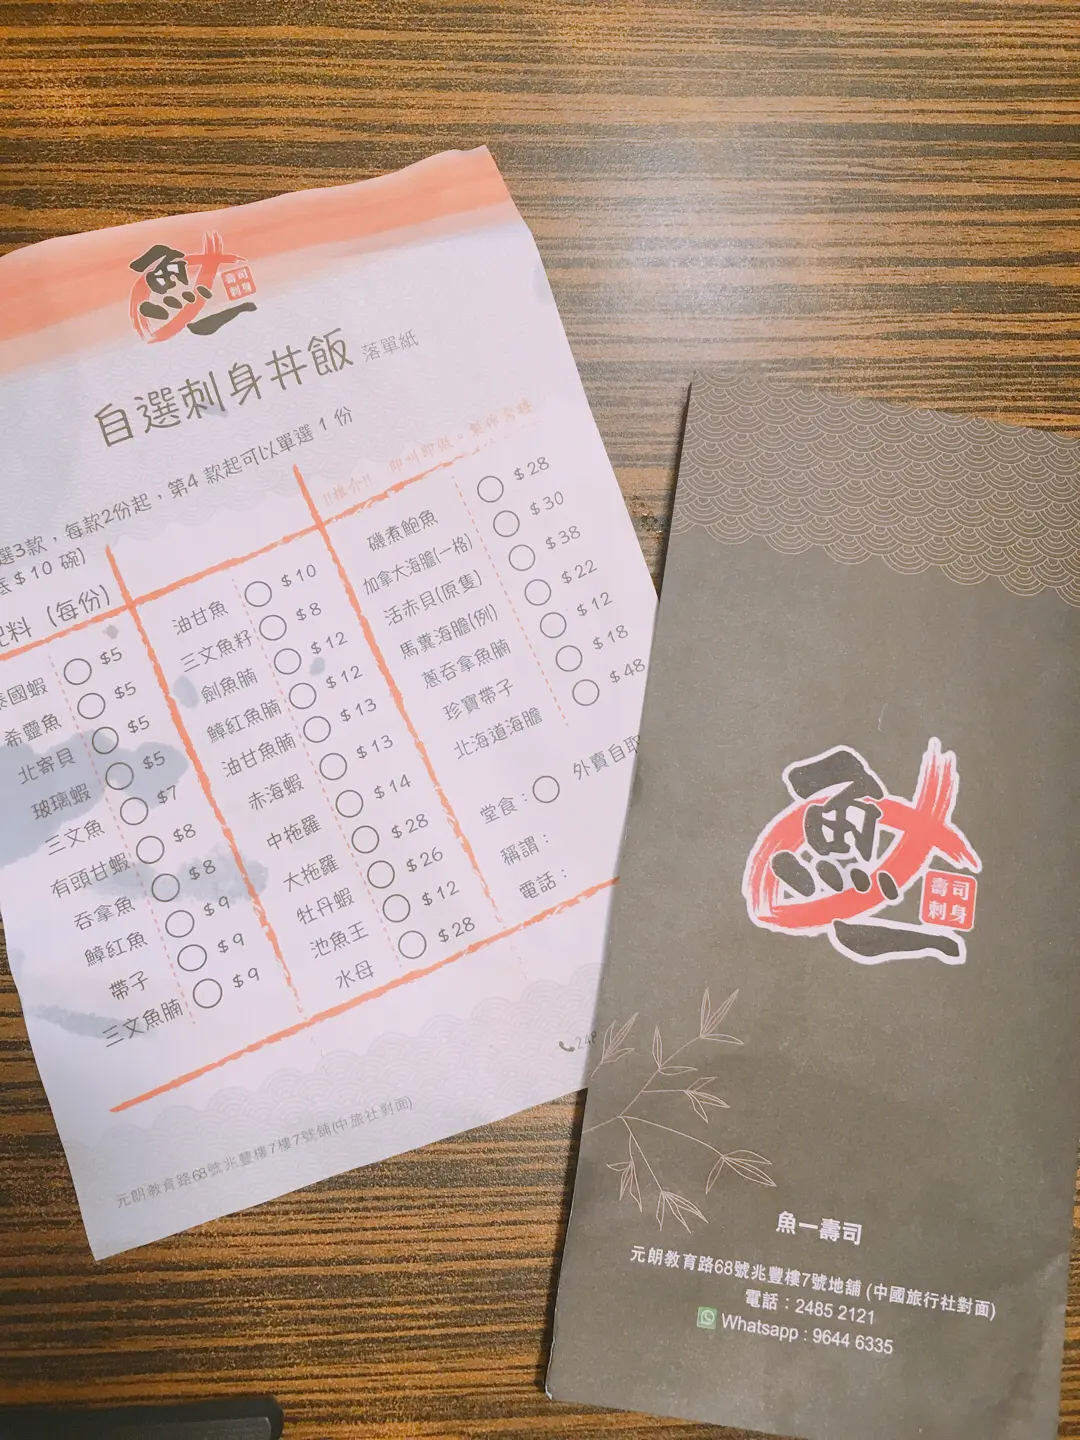 魚一
壽司
刺身
自選刺身丼飯 落單紙
選3款，每款2份起，第4 款起可以單選 1 份
底$10 碗)
料 (每份)
泰國蝦 $5
希靈魚 $5
北寄貝 $5
玻璃蝦 $5
三文魚 $7
有頭甘蝦 $8
吞拿魚 $8
鱆紅魚 $9
帶子 $9
三文魚腩 $9
油甘魚 $10
三文魚籽 $8
劍魚腩 $12
鱆紅魚腩 $12
油甘魚腩 $13
赤海蝦 $13
中拖羅 $14
大拖羅 $28
牡丹蝦 $26
池魚王 $12
水母 $28
!!推介!! 即叫即做。
磯煮鮑魚 $28
加拿大海膽(一格) $30
活赤貝(原隻) $38
馬糞海膽(例) $22
蔥吞拿魚腩 $12
珍寶帶子 $18
北海道海膽 $48
堂食： 外賣自取
稱謂：
電話：
248
元朗教育路68號兆豐樓7樓7號舖(中旅社對面)
魚一
壽司
刺身
魚一壽司
元朗教育路68號兆豐樓7號地舖 (中國旅行社對面)
電話 : 2485 2121
Whatsapp : 9644 6335